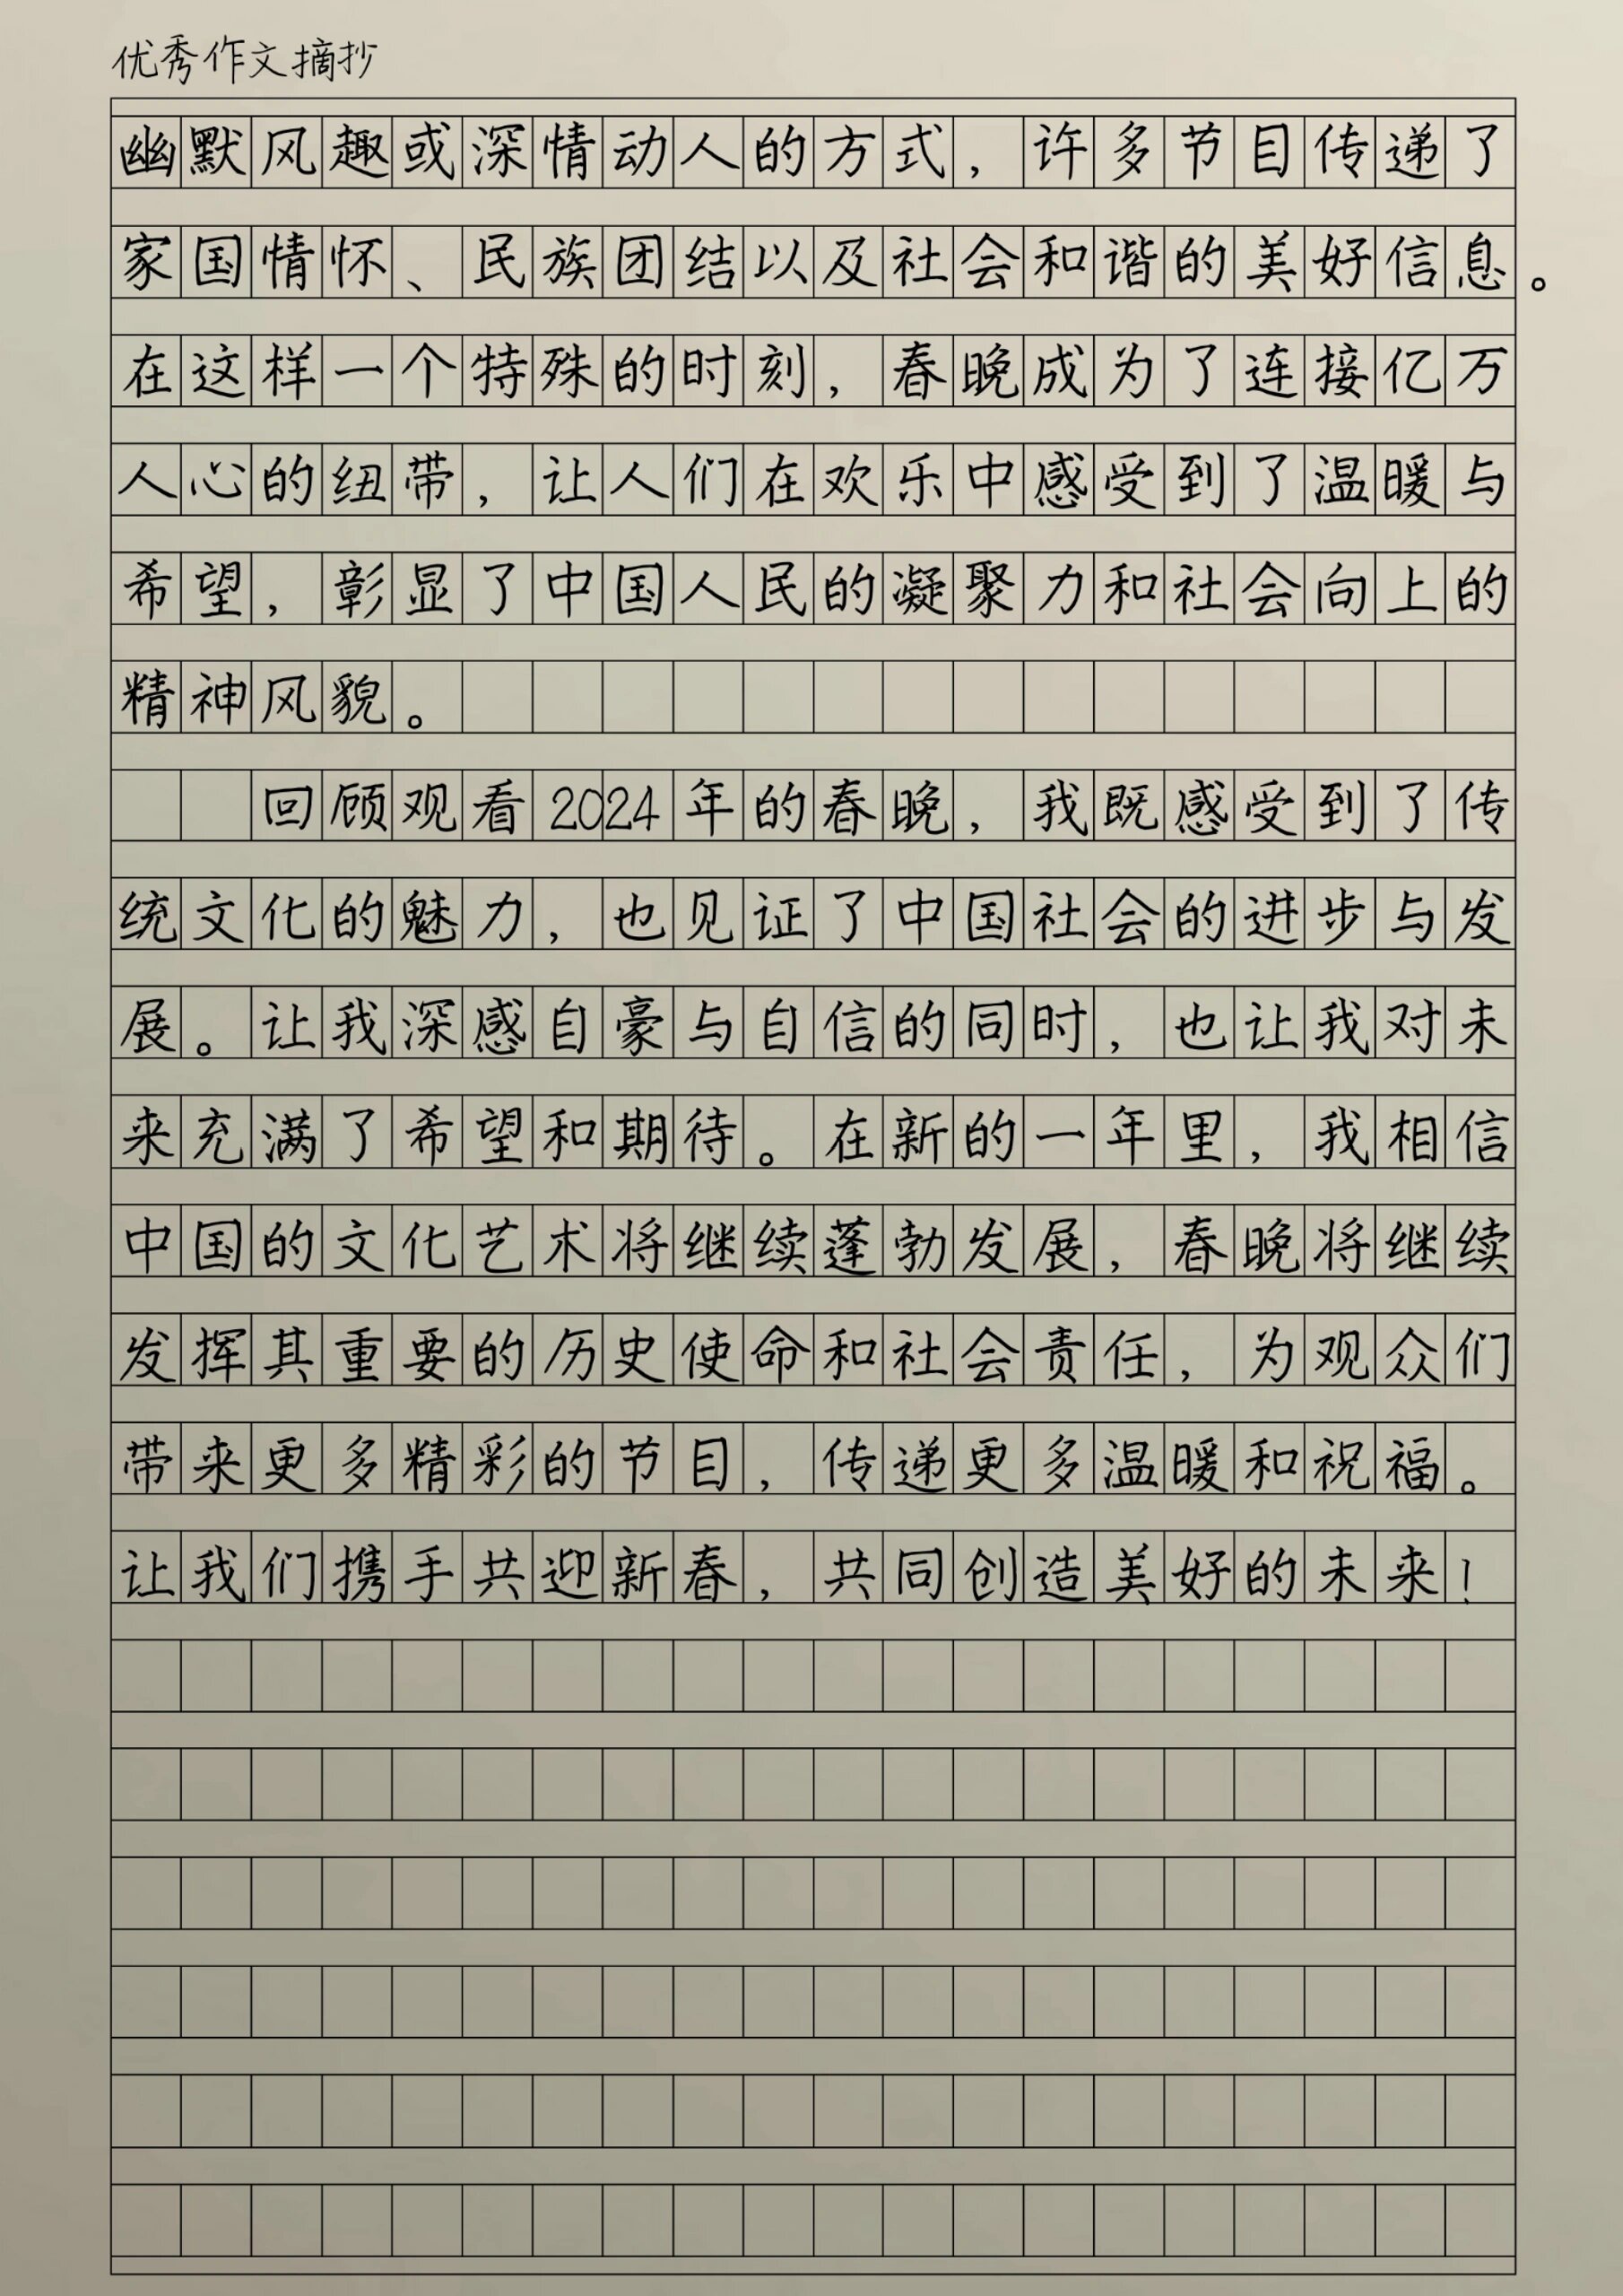 优秀作文摘抄
幽默风趣或深情动人的方式，许多节目传递了
家国情怀、民族团结以及社会和谐的美好信息。
在这样一个特殊的时刻，春晚成为了连接亿万
人心的纽带，让人们在欢乐中感受到了温暖与
希望，彰显了中国人民的凝聚力和社会向上的
精神风貌。
回顾观看2024年的春晚，我既感受到了传
统文化的魅力，也见证了中国社会的进步与发
展。让我深感自豪与自信的同时，也让我对未
来充满了希望和期待。在新的一年里，我相信
中国的文化艺术将继续蓬勃发展，春晚将继续
发挥其重要的历史使命和社会责任，为观众们
带来更多精彩的节目，传递更多温暖和祝福。
让我们携手共迎新春，共同创造美好的未来！